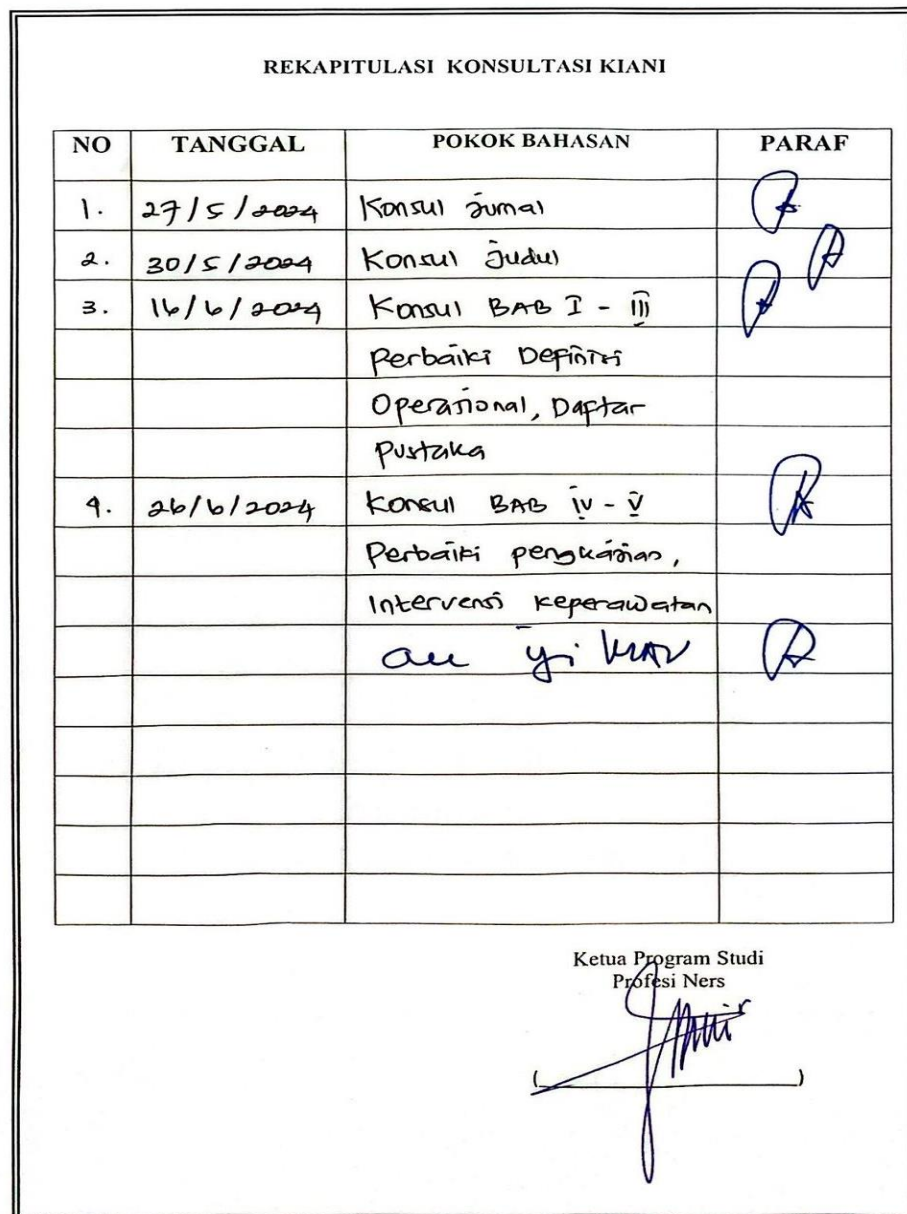 REKAPITULASI KONSULTASI KIANI
NO TANGGAL POKOK BAHASAN PARAF
1. 27/5/2024 Konsul Jurnal
2. 30/5/2024 Konsul Judul
3. 16/6/2024 Konsul BAB I - III
Perbaiki Definisi
Operasional, Daftar
Pustaka
4. 26/6/2024 Konsul BAB IV - V
Perbaiki pengkajian,
Intervensi keperawatan
Ketua Program Studi
Profesi Ners
( )